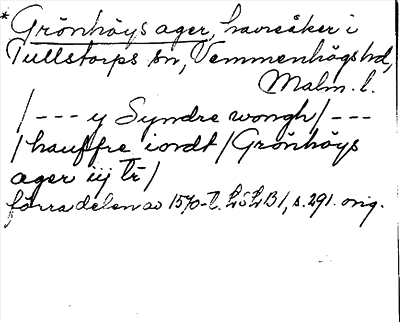 * Grönhöys ager, havreåker i
Tullstorps sn, Vemmenhögs hd,
Malm. l.
/--- y Syndre wongh/---
/hauffre iordt/Grönhöys
ager iij tr/
förra delen av 1570-t. LSLB1, s. 291. orig.